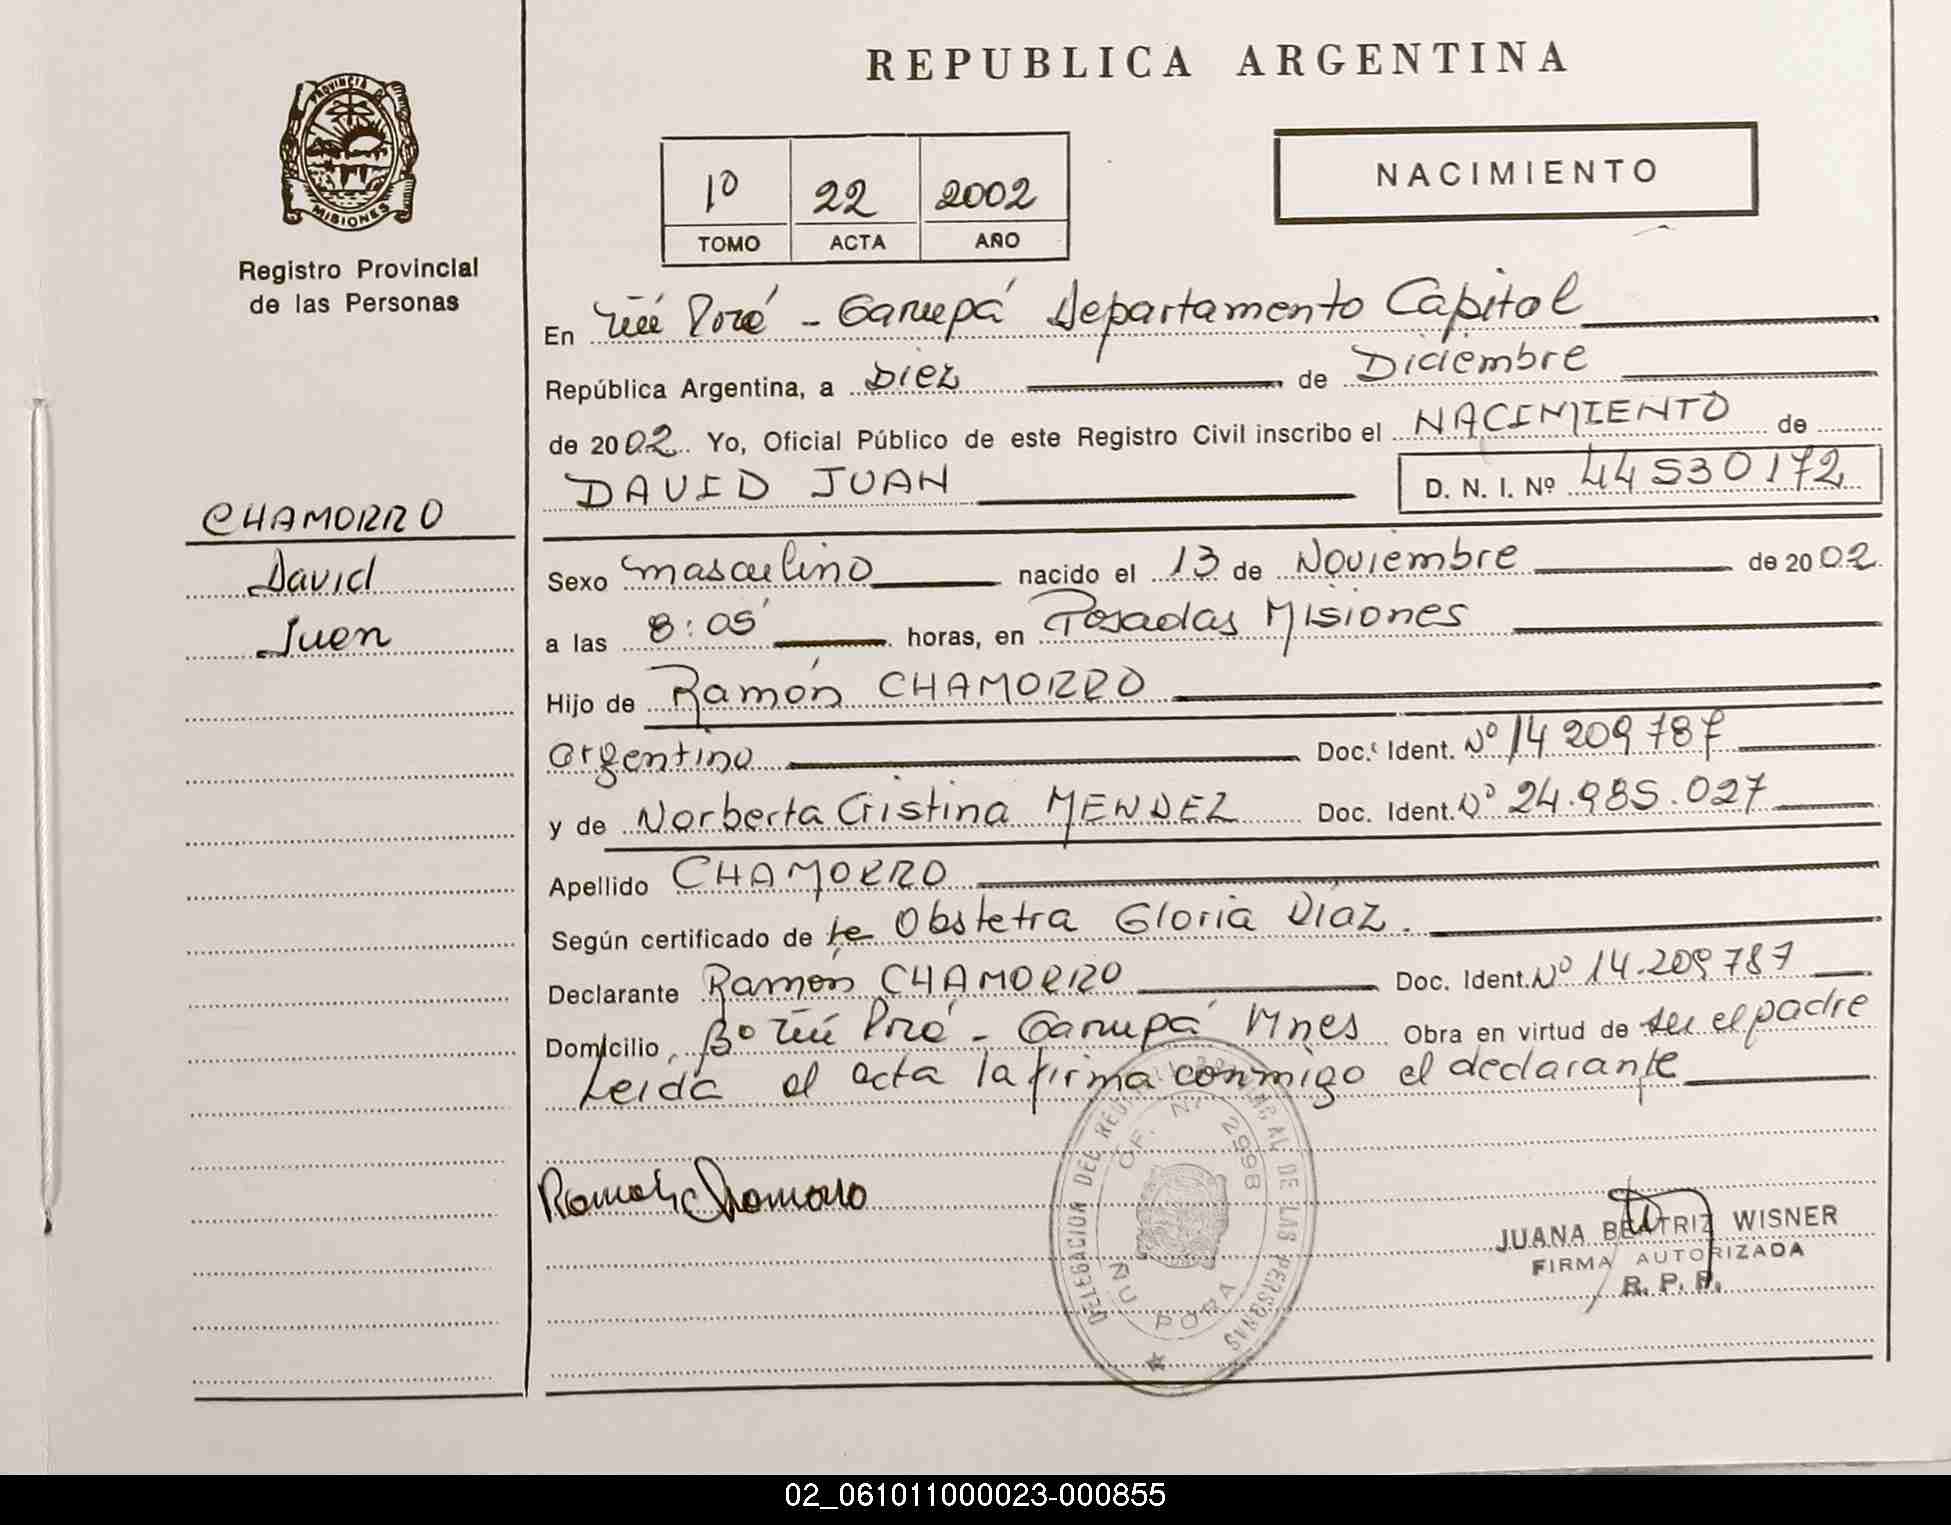 REPUBLICA ARGENTINA
PROVINCIA DE
MISIONES
Registro Provincial
de las Personas
1º 22 2002
TOMO ACTA AÑO
NACIMIENTO
En Ñú Porá - Garupá Departamento Capital
República Argentina, a Diez de Diciembre
de 2002. Yo, Oficial Público de este Registro Civil inscribo el NACIMIENTO de
DAVID JUAN D. N. I. Nº 44530172
CHAMORRO
David
Juan
Sexo masculino nacido el 13 de Noviembre de 2002.
a las 8:05 horas, en Posadas Misiones
Hijo de Ramón CHAMORRO
argentino Doc. Ident. Nº 14 209 787
y de Norberta Cristina MENDEZ Doc. Ident. Nº 24.985.027
Apellido CHAMORRO
Según certificado de la Obstetra Gloria Díaz.
Declarante Ramón CHAMORRO Doc. Ident. Nº 14.209 787
Domicilio Bº Ñú Porá - Garupá Mnes Obra en virtud de ser el padre
Leída el acta la firma conmigo el declarante
DELEGACION DEL REGISTRO PROVINCIAL DE LAS PERSONAS
OF. Nº 2998
ÑU PORA
Ramon Chamorro
JUANA BEATRIZ WISNER
FIRMA AUTORIZADA
R. P. P.
02_061011000023-000855